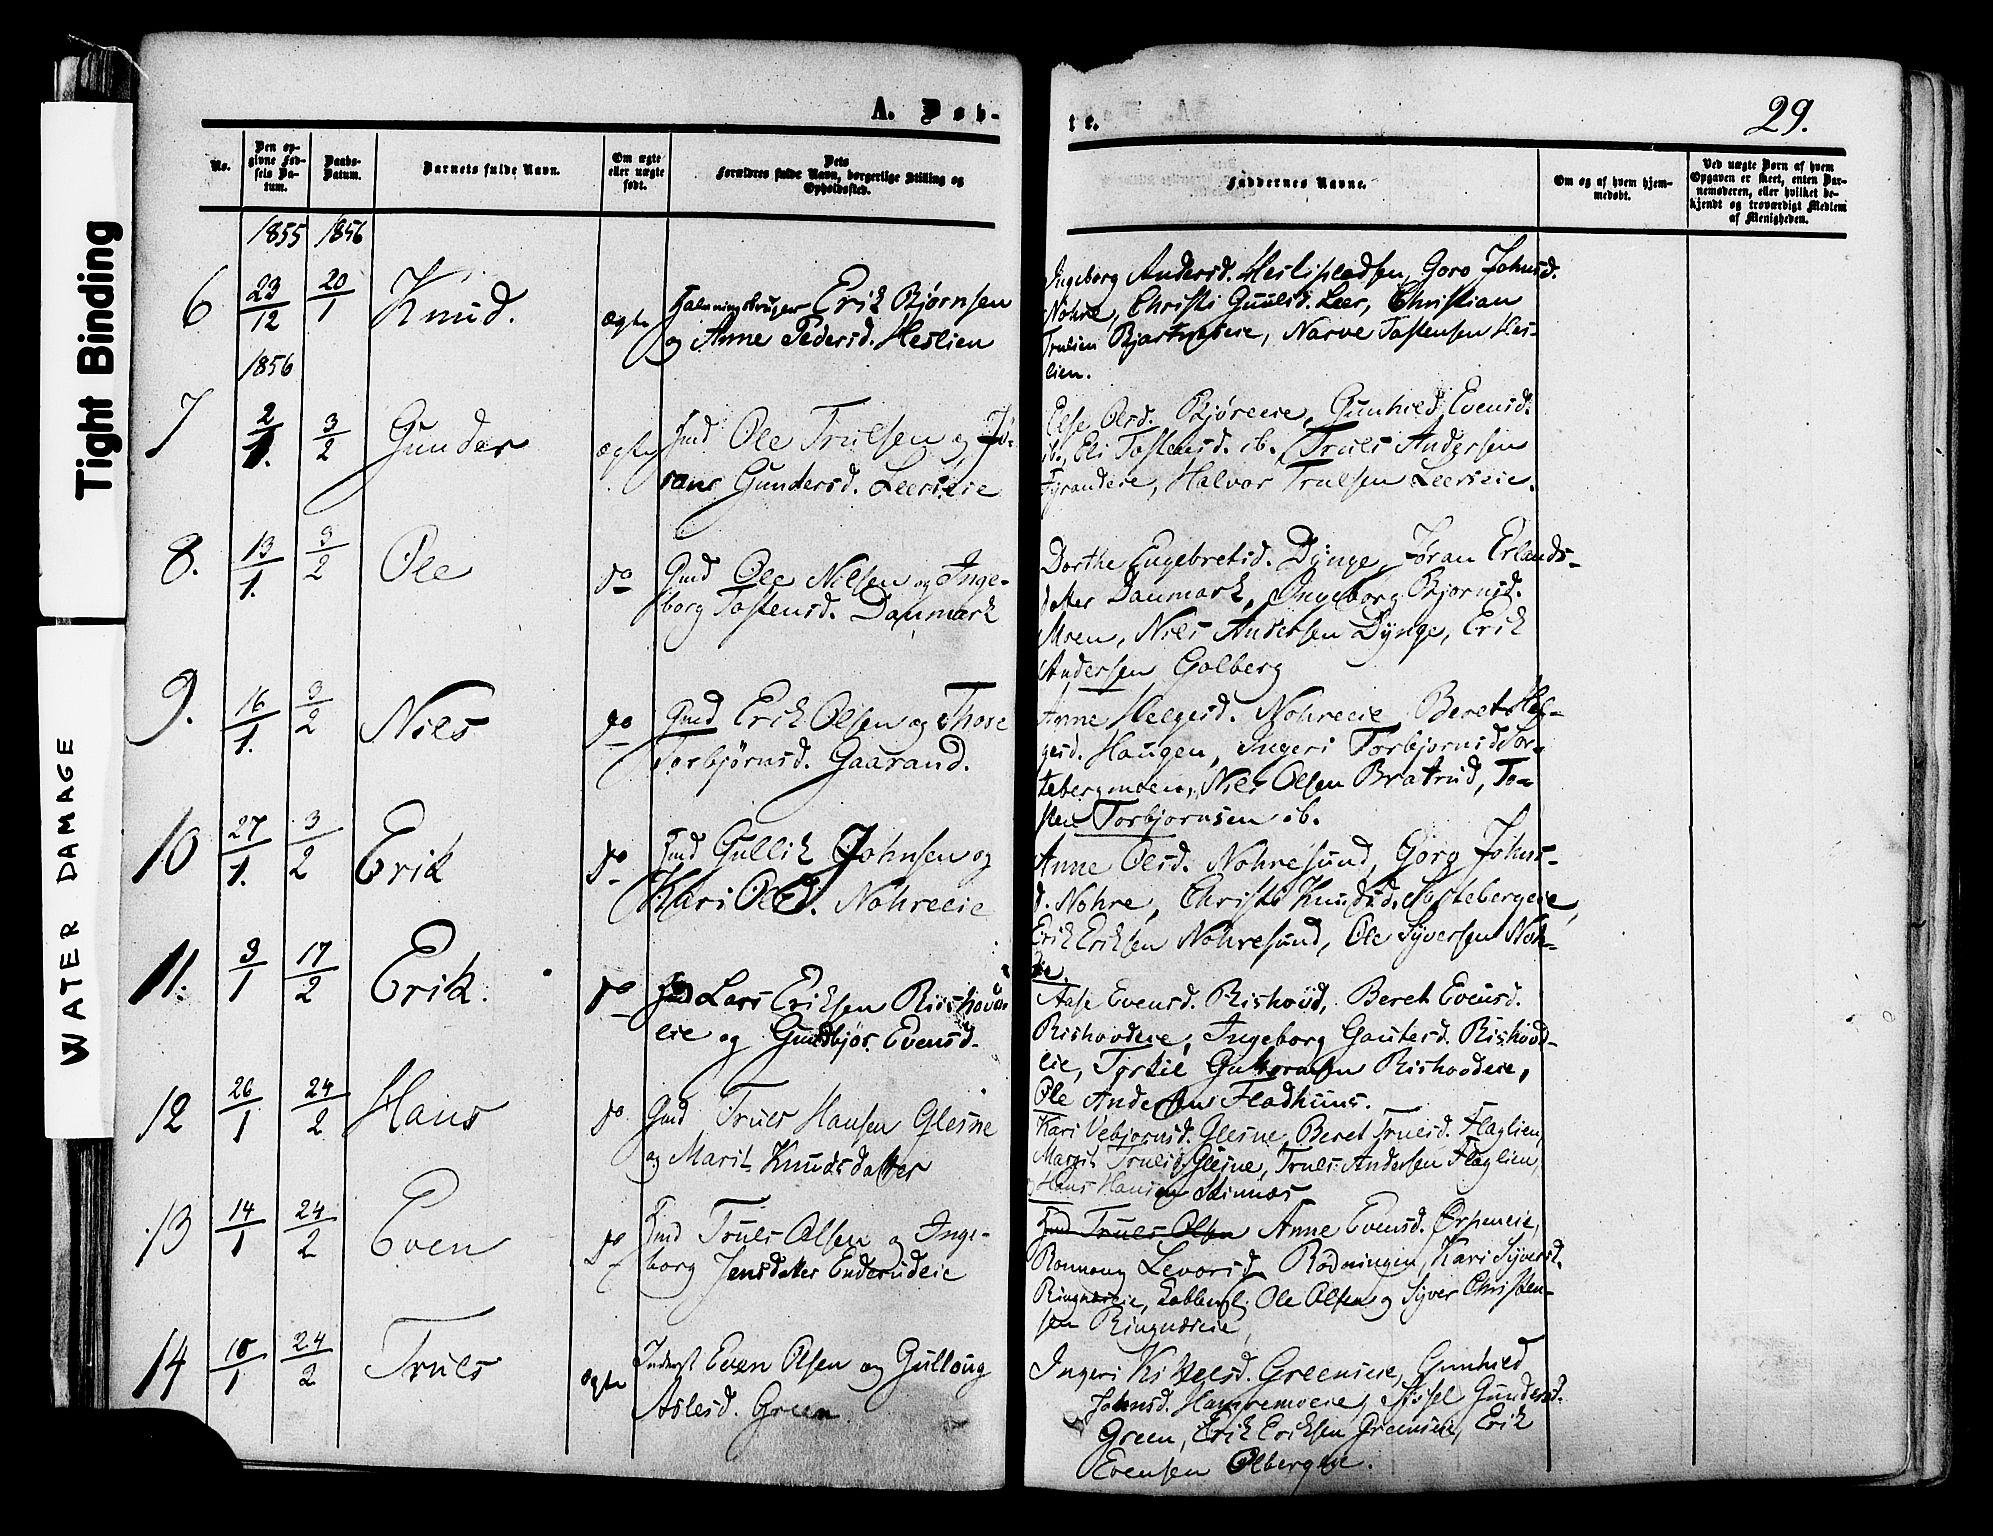 Tight Binding
WATER DAMAGE
A. Døb-
te.
29.
No.
Den opgivne Fødsels Datum.
Daabs-Datum.
Barnets fulde Navn.
Om ægte eller uægte født.
Dets Forældres fulde Navn, borgerlige Stilling og Opholdssted.
Faddernes Navne.
Om og af hvem hjemmedøbt.
Ved uægte Børn af hvem Opgaven er skeet, enten Barnemoderen, eller hvilket bekjendt og troværdigt Medlem af Menigheden.
1855 1856
6 23/12 20/1 Knud. ægte Erik Bjørnsen
og Anne Pedersd. Heslien
Ingeborg Andersd. Goro Johnsd.
Nohre, Christi Leer, Christian
Narve Tostensen Hes-
lien.
1856
7 2/1. 3/2 Gunder ægte Ole Trulsen og Jø-
rans Gundersd. Leerseie
Else Olsd. Gunhild Evensd.
ib., Eli Tostensd. ib. Truls Andersen
Halvor Trulsen Leerseie.
8. 13/1. 3/2 Ole do Gmd Ole Nilsen og Inge-
borg Tostensd. Danmark
Dorthe Engebretsd. Dynge, Jøran Erlands-
datter Danmark, Ingeborg Bjørnsd.
Moen, Niels Andersen Dynge, Erik
Andersen Golberg
9. 16/1. 3/2 Niels do Gmd Erik Olsen og Thore
Torbjørnsd. Gaarand.
Anne Helgesd. Nohreeie Beret Hel-
gesd. Haugen, Ingeri Torbjornsd
Niels Olsen Bratrud, To-
sten Torbjornsen ib.
10 27/1. 3/2 Erik do Gullik Johnsen og
Kari Olsd. Nohreeie
Anne Olsd. Nohresund, Gorg Johns-
d. Nohre, Christi Knudsd.
Erik Eriksen Nohresund, Ole Syversen Noh-
11. 3/1 17/2 Erik. do Lars Eriksen
eie og Gundbjør Evensd.
Aase Evensd. Rishovd, Beret Evensd.
Rishovdeie, Ingeborg Gautersd. Rishovd-
eie, Guttormsen Rishovdeie,
Ole Andersen Fladhuus.
12 26/1 24/2 Hans do Gmd Truls Hansen Glesne
og Marit Knudsdatter
Kari Vebjornsd. Glesne, Beret Trulsd. Flaglien,
Margit Trulsd. Glesne, Truls Andersen Flaglien,
Hans Hansen Skinnæs
13 14/1 24/2 Even do Truls Olsen og Inge-
borg Jensdatter Enderudeie
Truls Olsen Anne Evensd. Ørpeneie,
Ronnoug Levorsd. Rodningen, Kari Syversd.
Ringnæseie, Ole Olsen og Syver Christen-
sen Ringnæseie
14 10/1 24/2 Truls ægte Inderst Even Olsen og Gulloug
Aslesd. Green
Ingeri Kittelsd. Greenseie, Gunhild
Johnsd. Hamremoeie, Sissel Gundersd.
Green, Erik Eriksen Greenseie, Erik
Evensen Olbergeie.